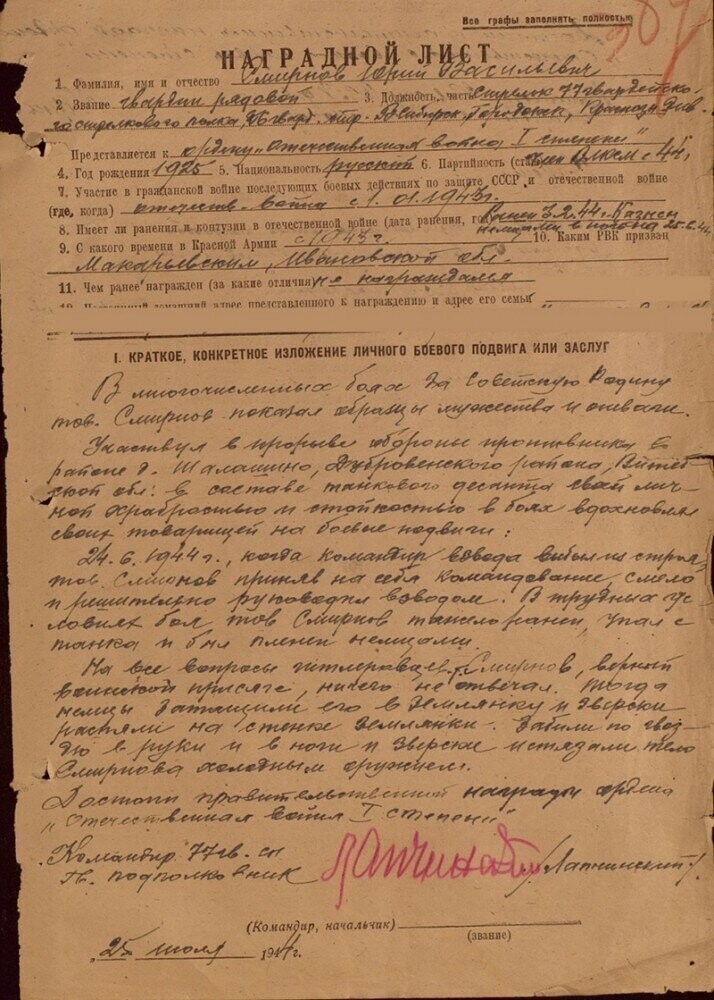 Все графы заполнять полностью
387
НАГРАДНОЙ ЛИСТ
1. Фамилия, имя и отчество Смирнов Юрий Васильевич
2 Звание гвардии рядовой 3. Должность, часть стрелок 77 гвардейско-
го стрелкового полка, 26 гвард. стр. В.Сибирск, Городокск, Красноз. див.
Представляется к ордену „Отечественная война I степени"
4. Год рождения 1925 5. Национальность русский 6. Партийность (ст член ВЛКСМ с 44г.
7. Участие в гражданской войне последующих боевых действиях по защите СССР и отечественной войне
(где, когда) отечеств. война с 1.01.1943г.
8. Имеет ли ранения и контузии в отечественной войне (дата ранения, го ранен 3.2.44. Казнен
немцами в 25.6.44
9. С какого времени в Красной Армии с 1943г. 10. Каким РВК призван
Макарьевским, Ивановской обл.
11. Чем ранее награжден (за какие отличия) не награждался
домашний адрес представленного к награждению и адрес его семьи
I. КРАТКОЕ, КОНКРЕТНОЕ ИЗЛОЖЕНИЕ ЛИЧНОГО БОЕВОГО ПОДВИГА ИЛИ ЗАСЛУГ
В многочисленных боях за Советскую Родину
тов. Смирнов показал образцы мужества и отваги.
Участвуя в прорыве обороны противника в
районе д. Шалашино, Дубровенского района, Витеб-
ской обл. в составе танкового десанта своей лич-
ной храбростью и стойкостью в боях вдохновлял
своих товарищей на боевые подвиги:
24.6.1944г., когда командир взвода выбыл из строя,
тов. Смирнов приняв на себя командование, смело
и решительно руководил взводом. В трудных ус-
ловиях боя тов Смирнов тяжело ранен, упал с
танка и был пленен немцами.
На все вопросы гитлеровцев т. Смирнов, верный
воинской присяге, ничего не отвечал. Тогда
немцы затащили его в землянку и зверски
распяли на стенке землянки. Забили по гвоз-
дю в руки и в ноги и зверски истязали тело
Смирнова холодным оружием.
Достоин правительственной награды ордена
„Отечественная война I степени"
Командир 77 гв. сп
гв. подполковник Лапчинский /Лапчинский/
(Командир, начальник) (звание)
„25" июля 1944г.